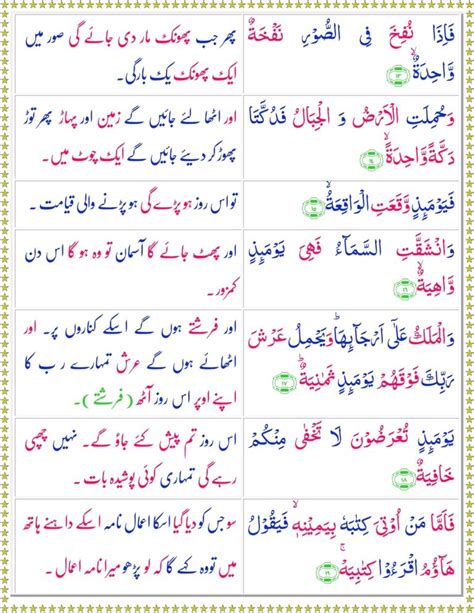 فَاِذَا نُفِخَ فِى الصُّوْرِ نَفْخَةٌ
وَّاحِدَةٌ ۙ ١٣
پھر جب پھونک مار دی جائے گی صور میں
ایک پھونک یک بارگی۔
وَحُمِلَتِ الْاَرْضُ وَ الْجِبَالُ فَدُكَّتَا
دَكَّةً وَّاحِدَةً ۙ ١٤
اور اٹھا لئے جائیں گے زمین اور پہاڑ پھر توڑ
پھوڑ کر دیئے جائیں گے ایک چوٹ میں۔
فَيَوْمَىِٕذٍ وَّقَعَتِ الْوَاقِعَةُ ۙ ١٥
تو اس روز ہو پڑے گی ہو پڑنے والی قیامت ۔
وَانْشَقَّتِ السَّمَآءُ فَهِىَ يَوْمَىِٕذٍ
وَّاهِيَةٌ ۙ ١٦
اور پھٹ جائے گا آسمان تو وہ ہو گا اس دن
کمزور۔
وَّالْمَلَكُ عَلٰٓى اَرْجَآىِٕهَا ؕ وَيَحْمِلُ عَرْشَ
رَبِّكَ فَوْقَهُمْ يَوْمَىِٕذٍ ثَمٰنِيَةٌ ؕ ١٧
اور فرشتے ہوں گے اسکے کناروں پر۔ اور
اٹھائے ہوں گے عرش تمہارے ر ب کا
اپنے اوپر اس روز آٹھ (فرشتے)۔
يَوْمَىِٕذٍ تُعْرَضُوْنَ لَا تَخْفٰى مِنْكُمْ
خَافِيَةٌ ١٨
اس روز تم پیش کئے جاؤ گے۔ نہیں چھپی
رہے گی تمہاری کوئی پوشیدہ بات ۔
فَاَمَّا مَنْ اُوْتِىَ كِتٰبَهٗ بِيَمِيْنِهٖ ۙ فَيَقُوْلُ
هَآؤُمُ اقْرَءُوْا كِتٰبِيَهْ ۚ ١٩
سو جس کو دیا گیا اسکا اعمال نامہ اسکے داہنے ہاتھ
میں تو وہ کہے گا کہ لو پڑھو میرا نامہ اعمال ۔